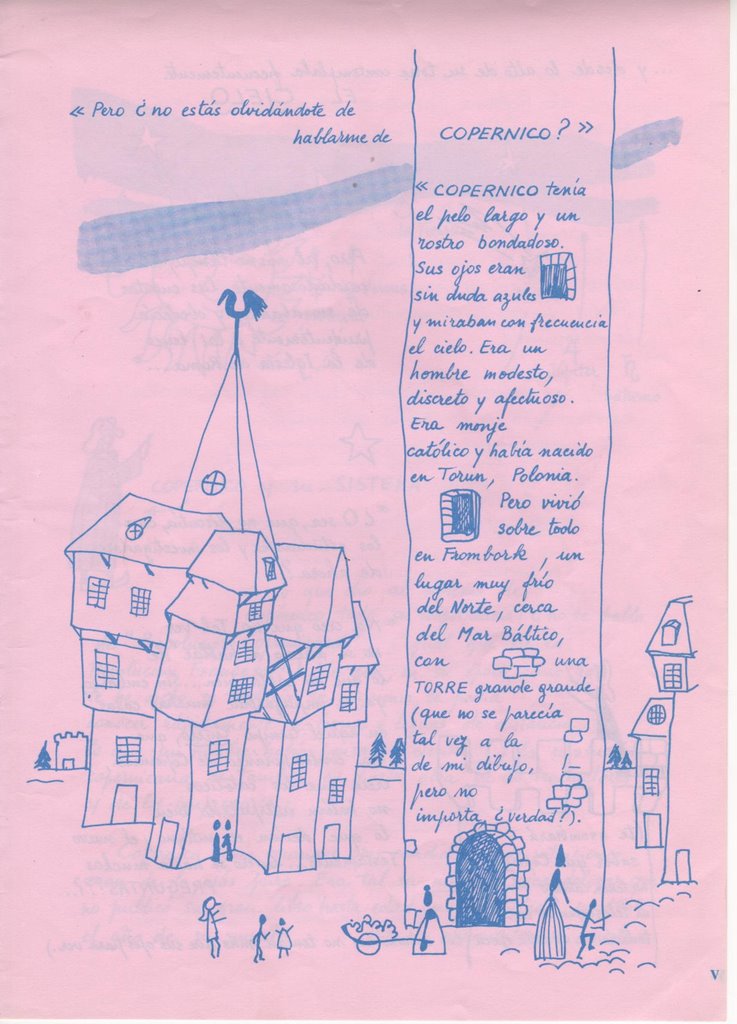 « Pero ¿ no estás olvidándote de
hablarme de COPERNICO? »
« COPERNICO tenía
el pelo largo y un
rostro bondadoso.
Sus ojos eran
sin duda azules
y miraban con frecuencia
el cielo. Era un
hombre modesto,
discreto y afectuoso.
Era monje
católico y había nacido
en Torun, Polonia.
Pero vivió
sobre todo
en Frombork, un
lugar muy frío
del Norte, cerca
del Mar Báltico,
con una
TORRE grande grande
(que no se parecía
tal vez a la
de mi dibujo,
pero no
importa ¿ verdad?).
V